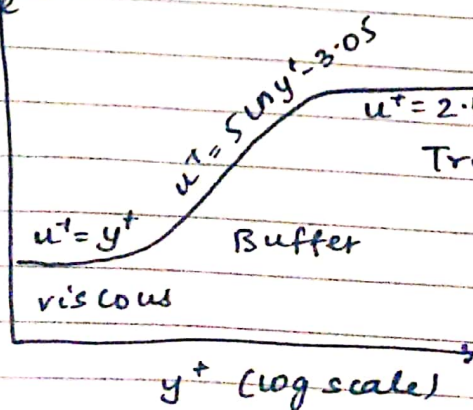 u⁺ = 5 ln y⁺ - 3.05
u⁺ = 2.
Tr
u⁺ = y⁺
Buffer
viscous
y⁺ (log scale)